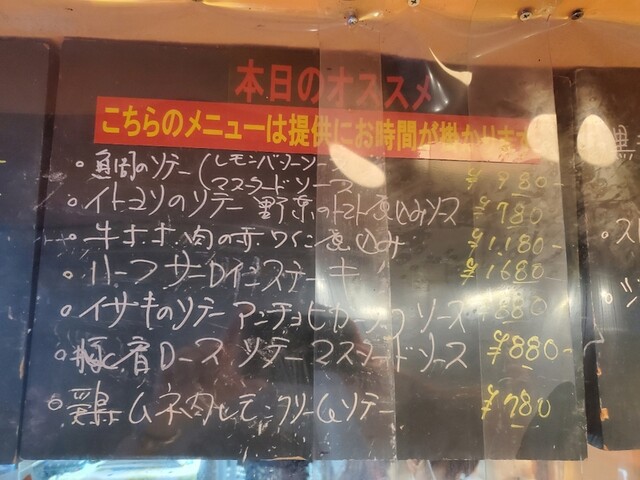 本日のオススメ
こちらのメニューは提供にお時間が掛かります
。のソテー(レモンバターソース
マスタードソース ¥980-
。イトヨリのソテー 野菜のトマト煮込みソース ¥780
。牛ホホ肉の赤ワイン煮込み ¥1,180-
。ハーフサーロインステーキ ¥1680-
。イサキのソテーアンチョビガーリックソース 880-
。豚肩ロースソテーマスタードソース ¥880-
。鶏ムネ肉レモンクリームソテー ¥780
黒
。ス